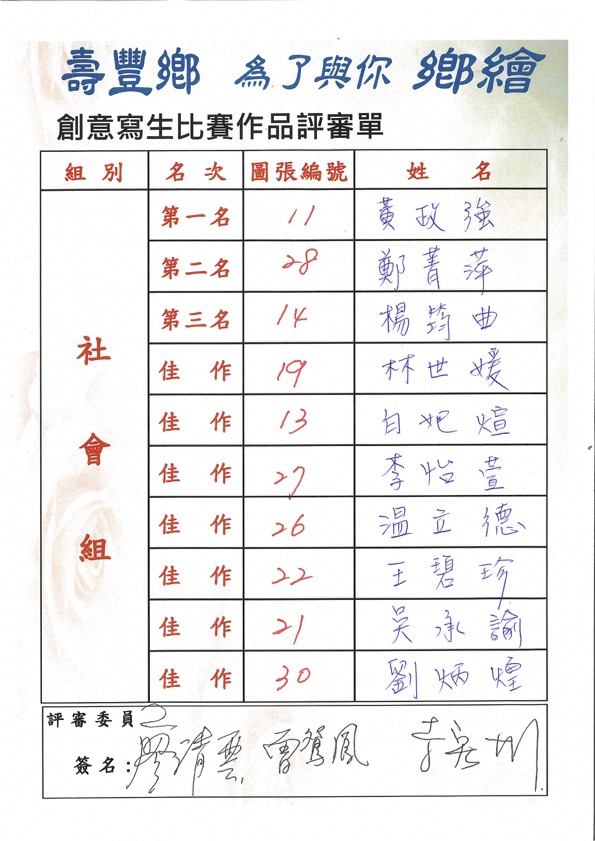 壽豐鄉 為了與你 鄉繪
創意寫生比賽作品評審單
組別 名次 圖張編號 姓名
社會組
第一名 11 黃政強
第二名 28 鄭菁萍
第三名 14 楊筠曲
佳作 19 林世媛
佳作 13 白妑煊
佳作 27 李怡萱
佳作 26 溫立德
佳作 22 王碧珍
佳作 21 吳承諭
佳作 30 劉炳煌
評審委員
簽名：廖清雲 曾鴛鳳